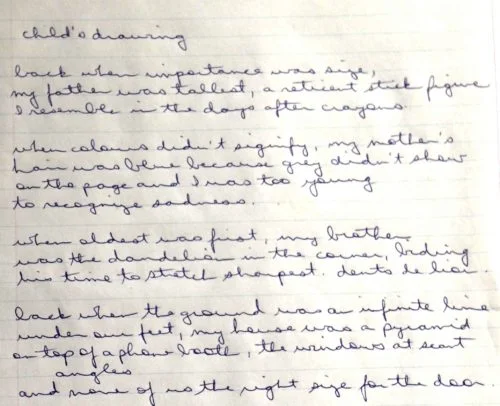 child's drawing
back when importance was size,
my father was tallest, a reticent stick figure
I resemble in the days after crayons.
when colours didn't signify, my mother's
hair was blue because grey didn't show
on the page and I was too young
to recognize sadness.
when oldest was first, my brother
was the dandelion in the corner, biding
his time to stretch sharpest. dents de lion.
back when the ground was an infinite line
under our feet, my house was a pyramid
on top of a phone booth, the windows at scant
angles
and none of us the right size for the door.